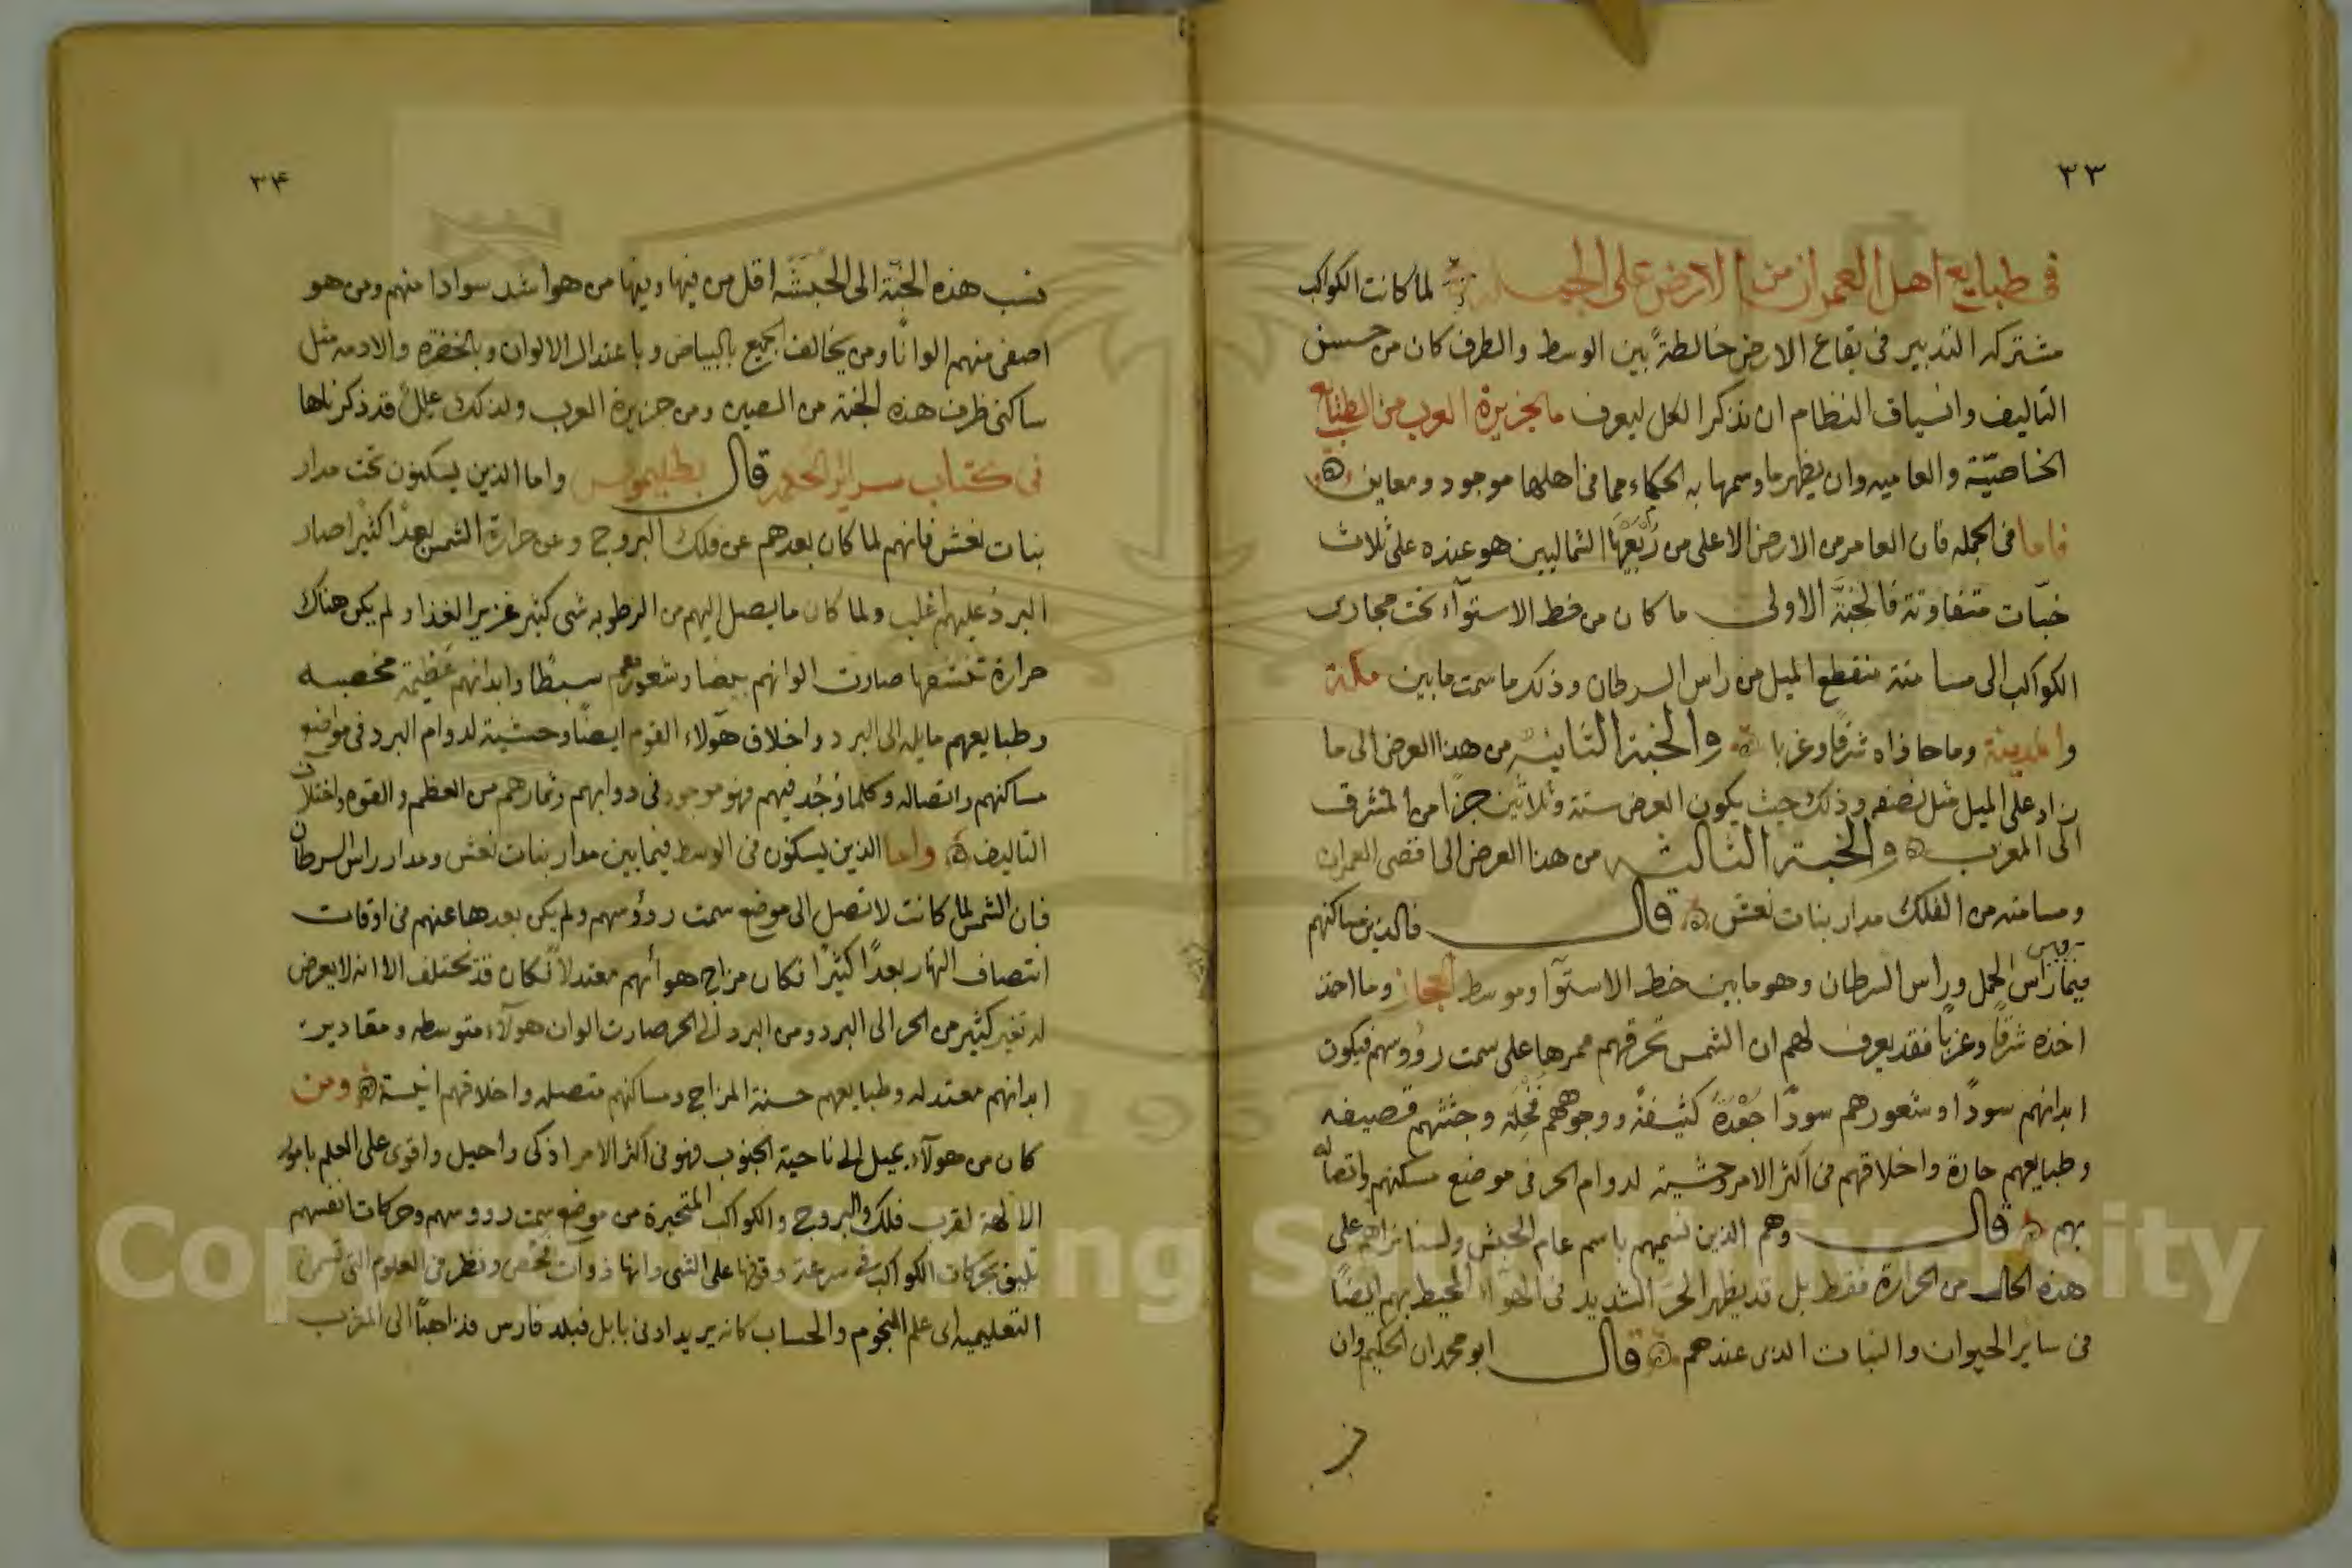 ٣٣
في طبايع اهل العمران من الارض على الجملة لما كانت الكواكب
مشتركه التدبير فى بقاع الارض خالطةً بين الوسط والطرف كان من حسن
التاليف وانسياق النظام ان نذكر الكل ليعرف ما لجزيرة العرب من الطبايع
الخاصيّة والعاميه وان يظهر ما وسمها به الحكماء مما فى اهلها موجود ومعاين
فاما فى الجمله فان العامر من الارض الاعلى من رُبْعَيْها الشماليين هو عنده على ثلاث
خبّات متفاوتة فالخبَّة الاولى ما كان من خط الاستوآء تحت مجارى
الكواكب الى مسامتة منقطع الميل من راس السرطان وذلك ما سمت ما بين مكة
والمدينة وما حاذاه شرقًا وغربا والخبة الثانية من هذا العرض الى ما
زاد على الميل مثل نصفه وذلك حيث يكون العرض ستة وثلاثين جزًا من المشرق
الى المغرب والخبة الثالثه من هذا العرض الى اقصى العمران
ومسامته من الفلك مدار بنات نعش قال فالذين مساكنهم
فيما بين راس الحمل وراس السرطان وهو ما بين خط الاستوآ وموسط الحجاز وما اخذ
اخذه شرقًا وغربًا فقد يعرف لهم ان الشمس تحرقهم لممرها على سمت رؤوسهم فيكون
ابدانهم سودًا وشعورهم سودًا جَعْدَةً كثيفةً ووجوههم قَحِلة وجثثهم قصيفه
وطبايعهم حارة واخلاقهم فى اكثر الامر وحشية لدوام الحر فى موضع مسكنهم واتصاله
بهم قال وهم الذين نسميهم باسم عام الحبش ولسنا نراهم على
هذه الحال من الحرارة فقط بل قد يظهر الحر الشديد فى الهوآء المحيط بهم ايضًا
فى ساير الحيوان والنبات الذى عندهم قال ابو محمد ان الحكيم وان
٣٤
نسب هذه الخبّة الى الحَبَشَة اقل من فيها وفيها من هو اشد سوادا منهم ومن هو
اصفى منهم الوانًا ومن يخالف الجميع بالبياض وباعتدال الالوان وبالخضرة والادمه مثل
ساكنى طرف هذه الخبة من الصين ومن جزيرة العرب ولذلك عللٌ قد ذكرناها
فى كتاب سراير الحكمة قال بطليموس واما الذين يسكنون تحت مدار
بنات نعش فانهم لما كان بعدهم عن فلك البروج وعن حرارة الشمس بعدًا كثيرًا صار
البرد عليهم اغلب ولما كان ما يصل اليهم من الرطوبه شى كثير غزير الغذا ولم يكن هناك
حرارة تنشفها صارت الوانهم بيضا وشعورهم سبطًا وابدانهم عظيمة مخصبه
وطبايعهم مايله الى البرد واخلاق هوّلاء القوم ايضًا وحشية لدوام البرد فى مواضع
مساكنهم واتصاله وكلما وُجد فيهم فهو موجود فى دوابهم وثمارهم من العظم والقوه واختلاف
التاليف واما الذين يسكنون فى الوسط فيما بين مدار بنات نعش ومدار راس السرطان
فان الشمس لما كانت لا تصل الى موضع سمت رؤوسهم ولم يكن بعدها عنهم فى اوقات
انتصاف النهار بعدًا كثيرًا فكان مزاج هوائهم معتدلًا فكان قد يختلف الا انه لا يعرض
له تغير كثير من الحر الى البرد ومن البرد الى الحر صارت الوان هولآء متوسطه ومقادير
ابدانهم معتدله وطبايعهم حسنة المزاج ومساكنهم متصله واخلاقهم انيسة ومن
كان من هولآء يميل الى ناحية الجنوب فهو فى اكثر الامر اذكى واحيل واقوى على العلم بامور
الالهة لقرب فلك البروج والكواكب المتحيرة من موضع سمت رووسهم وحركات انفسهم
تليق بحركات الكواكب فى سرعة وقوفها على الشى وانها ذوات فحص ونظر فى العلوم التى تسمى
التعليميه اى علم النجوم والحساب كانه يريد ادنى بابل فبلد فارس فذاهبًا الى المغرب
Copyright © King Saud University
1957